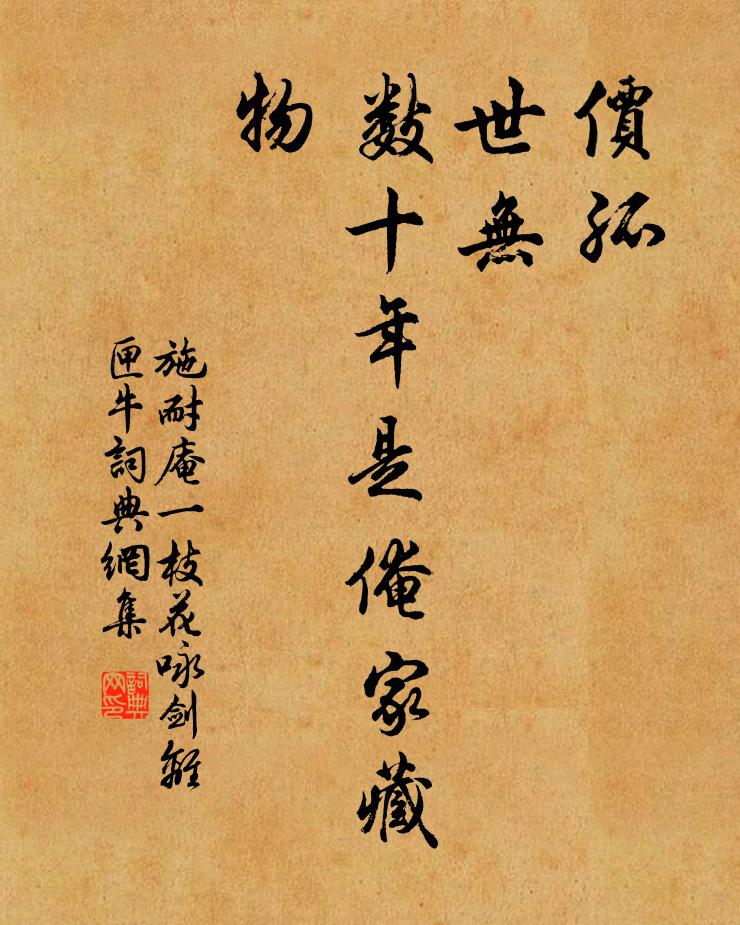 價孤
世無
數十年是俺家藏
物
施耐庵一枝花咏劍離
匣牛詞典網集
詞典
网印